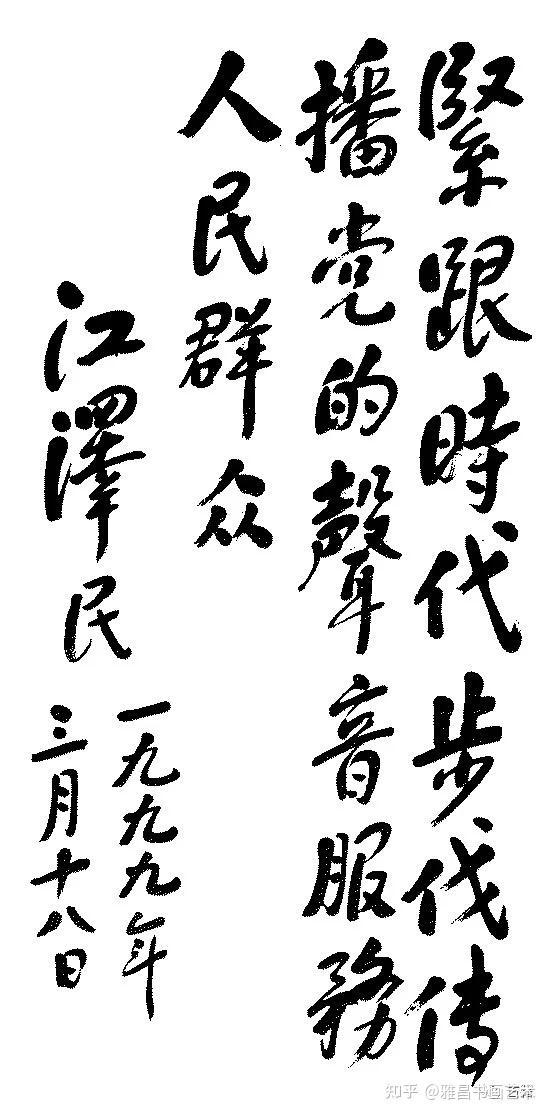 緊跟時代步伐傳
播党的聲音服務
人民群众
江澤民
一九九九年
三月十八日
知乎 @雅昌书画百科